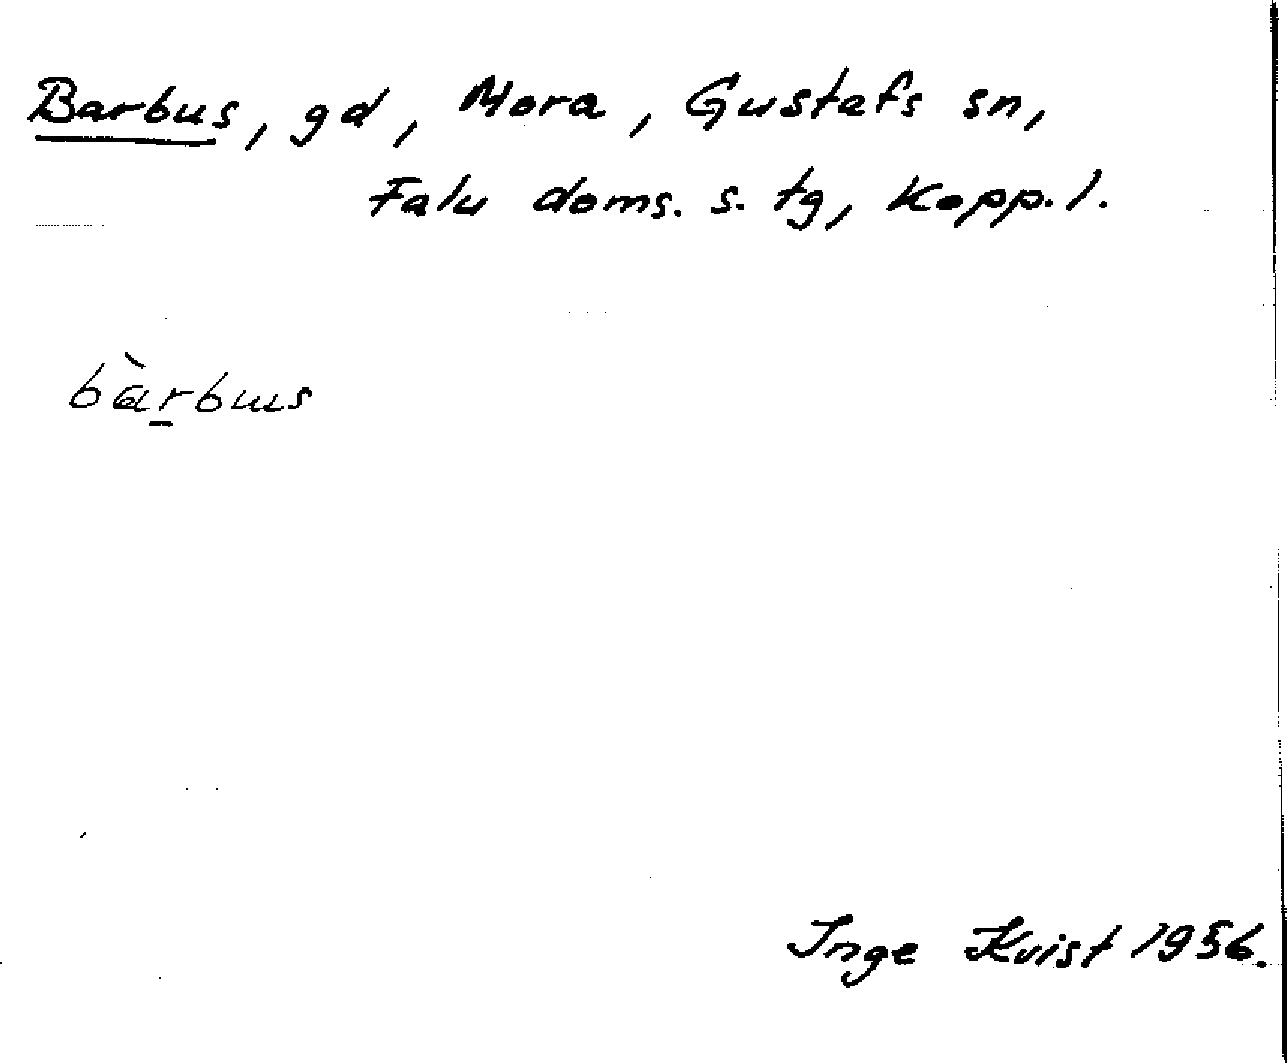 Barbus, gd, Mora, Gustafs sn,
Falu doms. s. tg, Kopp. l.
bàrbɯs
Inge Kvist 1956.